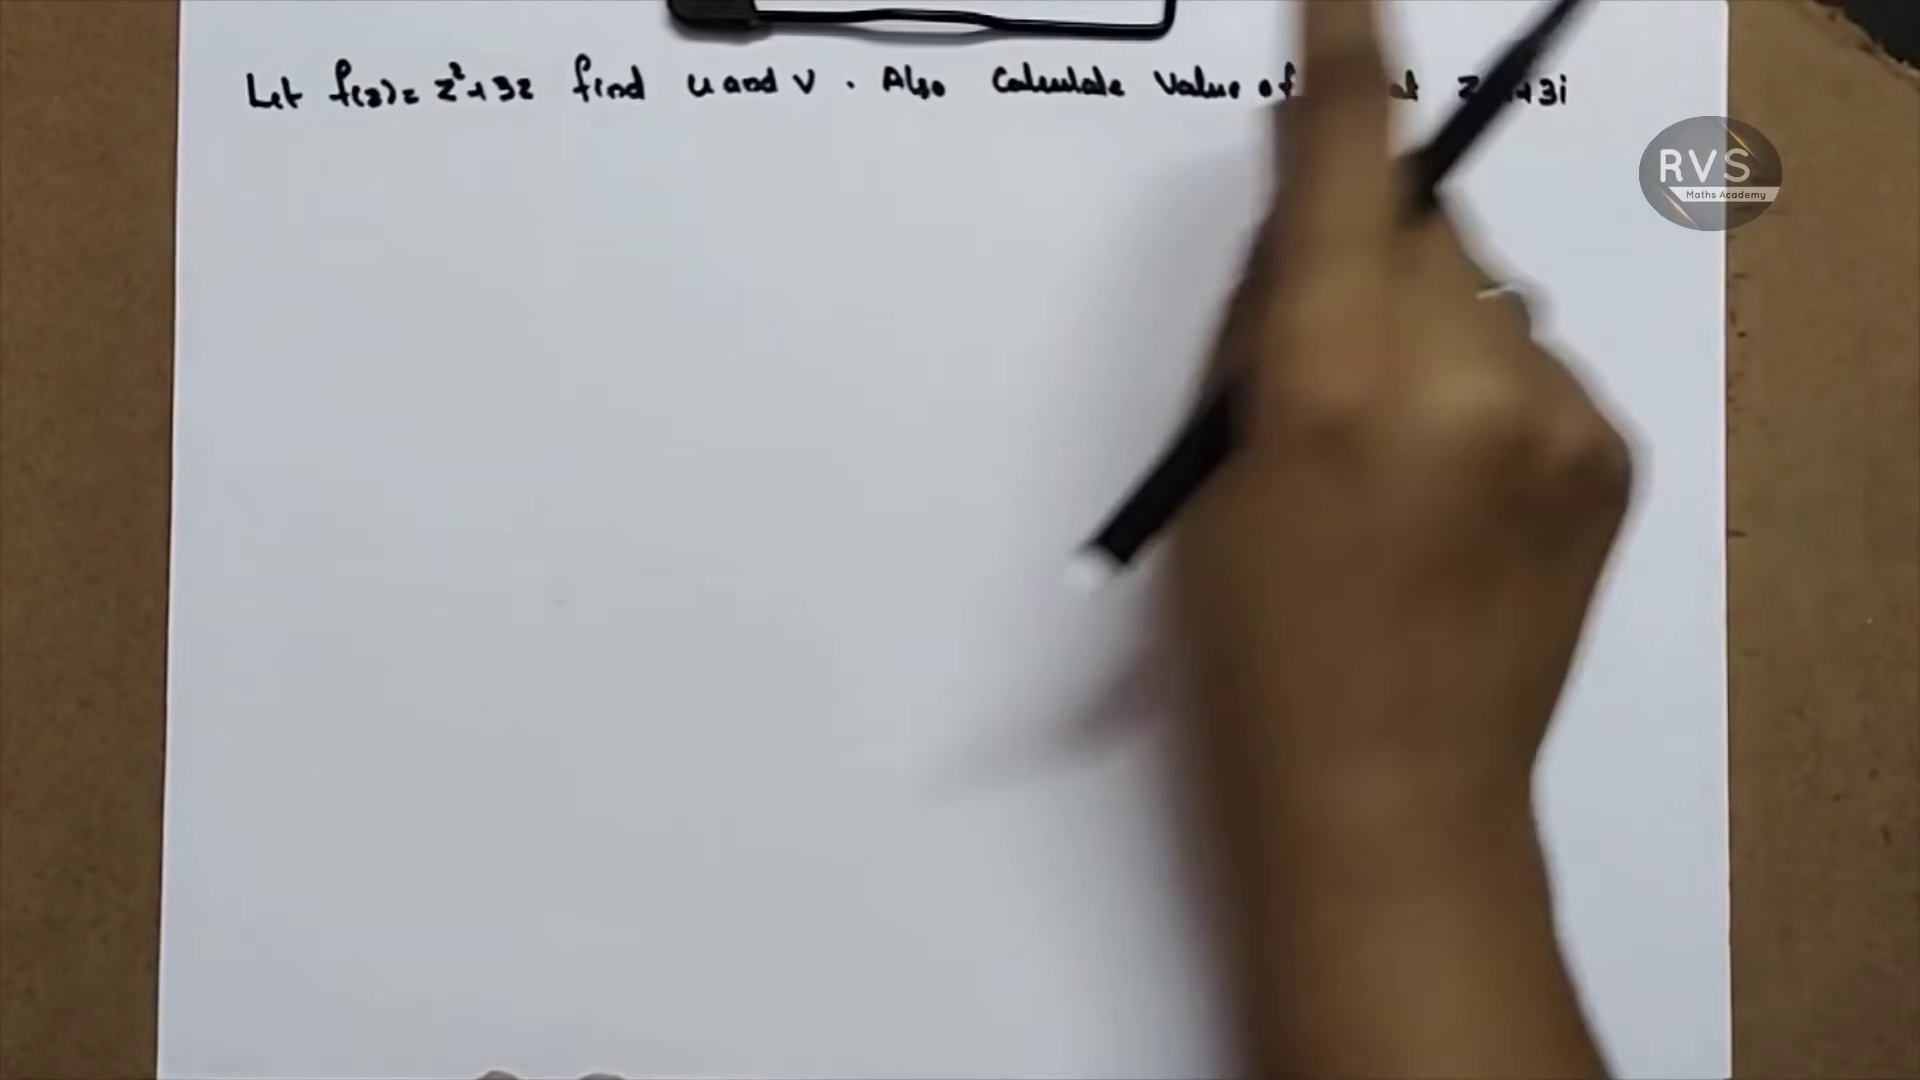 Let f(z)= z²+3z find u and v . Also Calculate Value of at z +3i
RVS
Maths Academy